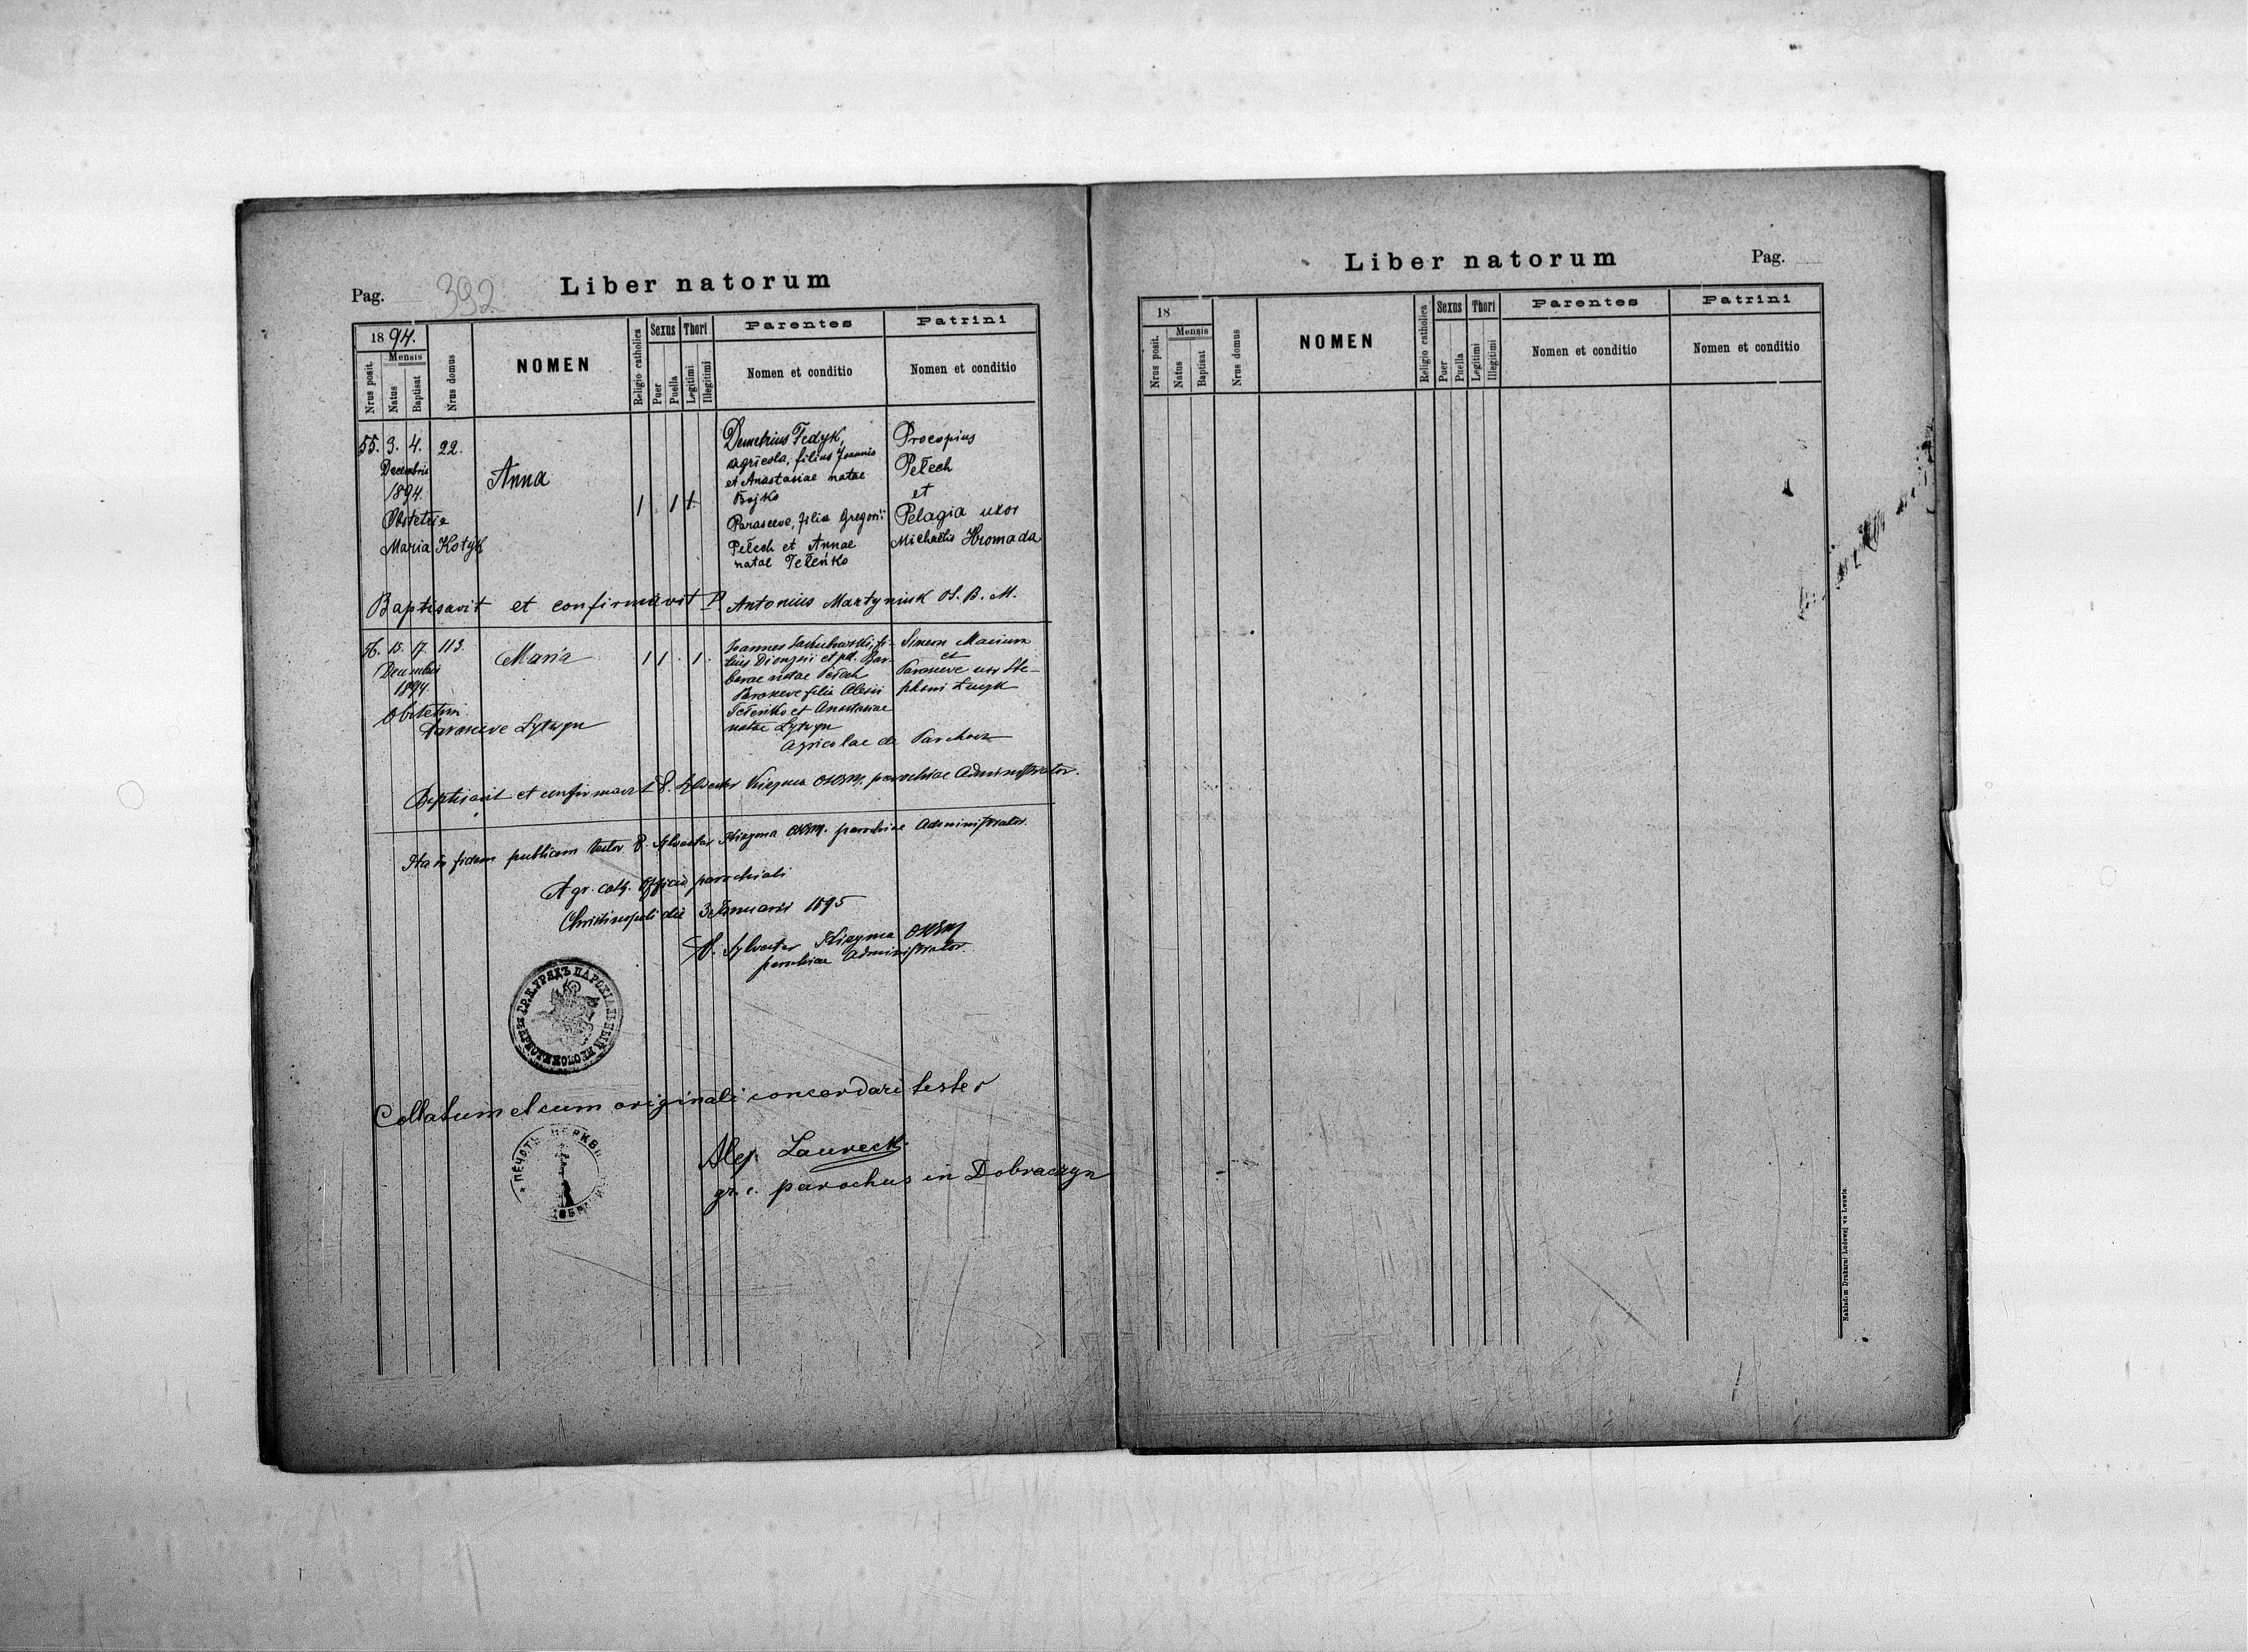 Pag. 392
Liber natorum
1894.
Nrus posit.
Mensis
Natus
Baptisat
Nrus domus
NOMEN
Religio catholica
Sexus
Puer
Puella
Thori
Legitimi
Illegitimi
Parentes
Nomen et conditio
Patrini
Nomen et conditio
55. 3. 4. 22.
Decembris
1894.
Obstetrix
Maria Kotyk
Anna
1 . 1 1.
Demetrius Fedyk,
agricola, filius Joannis
et Anastasiae natae
Bojko
Parasceve, filia Gregorii
Pełech et Annae
natae Teleńko
Procopius
Pełech
et
Pelagia uxor
Michaelis Hromada
Baptisavit et confirmavit P. Antonius Martyniuk O. S. B. M.
56. 15. 17. 113.
Decembris
1894.
Obstetrix
Parasceve Lytwyn
Maria
1 1 . 1 .
Joannes Jakubowski, fi-
lius Dionysii et Bar-
barae natae Pełech
Parasceve filia Alexii
Teleńko et Anastasiae
natae Lytwyn
Agricolae de Parchacz
Simeon
et
Parasceve uxor Ste-
phani
Baptisavit et confirmavit P. Sylvester Kizyma OSBM. parochiae Administrator.
Ita in fidem publicam testor P. Sylvester Kizyma OSBM. parochiae Administrator.
A gr. cath. Officio parochiali
Christinopoli die 3 Januarii 1895
P. Sylvester Kizyma OSBM
parochiae Administrator.
ГР.К.УРЯДЪ ПАРОХІАЛЬНЫЙ
Collatum et cum originali concordari testor
ПЕЧАТЬ ЦЕРКВИ
Alex. Laurecki
gr. c. parochus in Dobraczyn
Liber natorum
Pag.
18
Nrus posit.
Mensis
Natus
Baptisat
Nrus domus
NOMEN
Religio catholica
Sexus
Puer
Puella
Thori
Legitimi
Illegitimi
Parentes
Nomen et conditio
Patrini
Nomen et conditio
Nakładem Drukarni Ludowej we Lwowie.